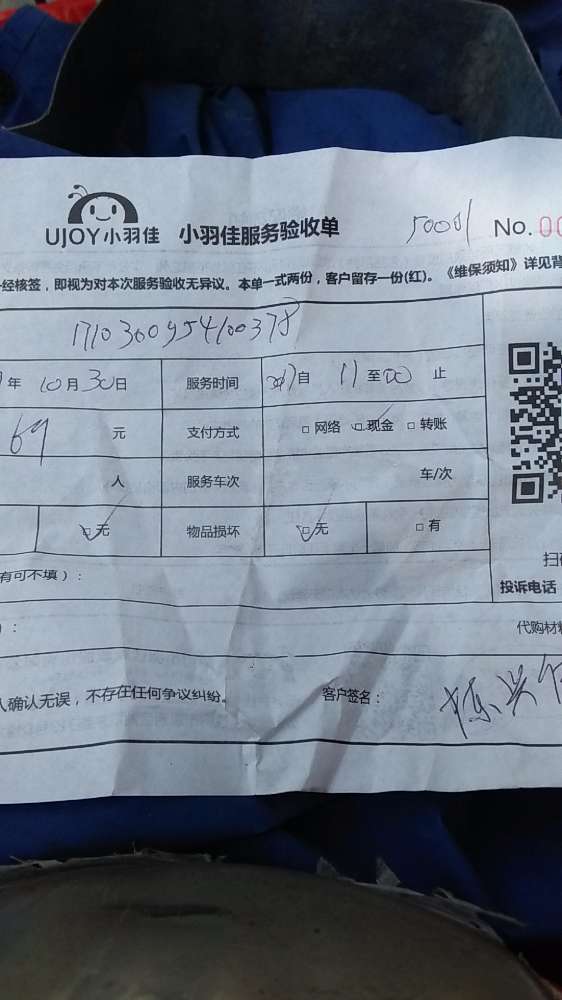 UJOY小羽佳 小羽佳服务验收单 50001 No.00
经核签，即视为对本次服务验收无异议。本单一式两份，客户留存一份(红)。《维保须知》详见背
171030095400378
年 10月30日 服务时间 自 11 至00 止
69 元 支付方式 □网络 □现金 □转账
人 服务车次 车/次
□无 物品损坏 □无 □有
有可不填）：
扫
投诉电话
）： 代购材料
人确认无误，不存在任何争议纠纷。 客户签名：